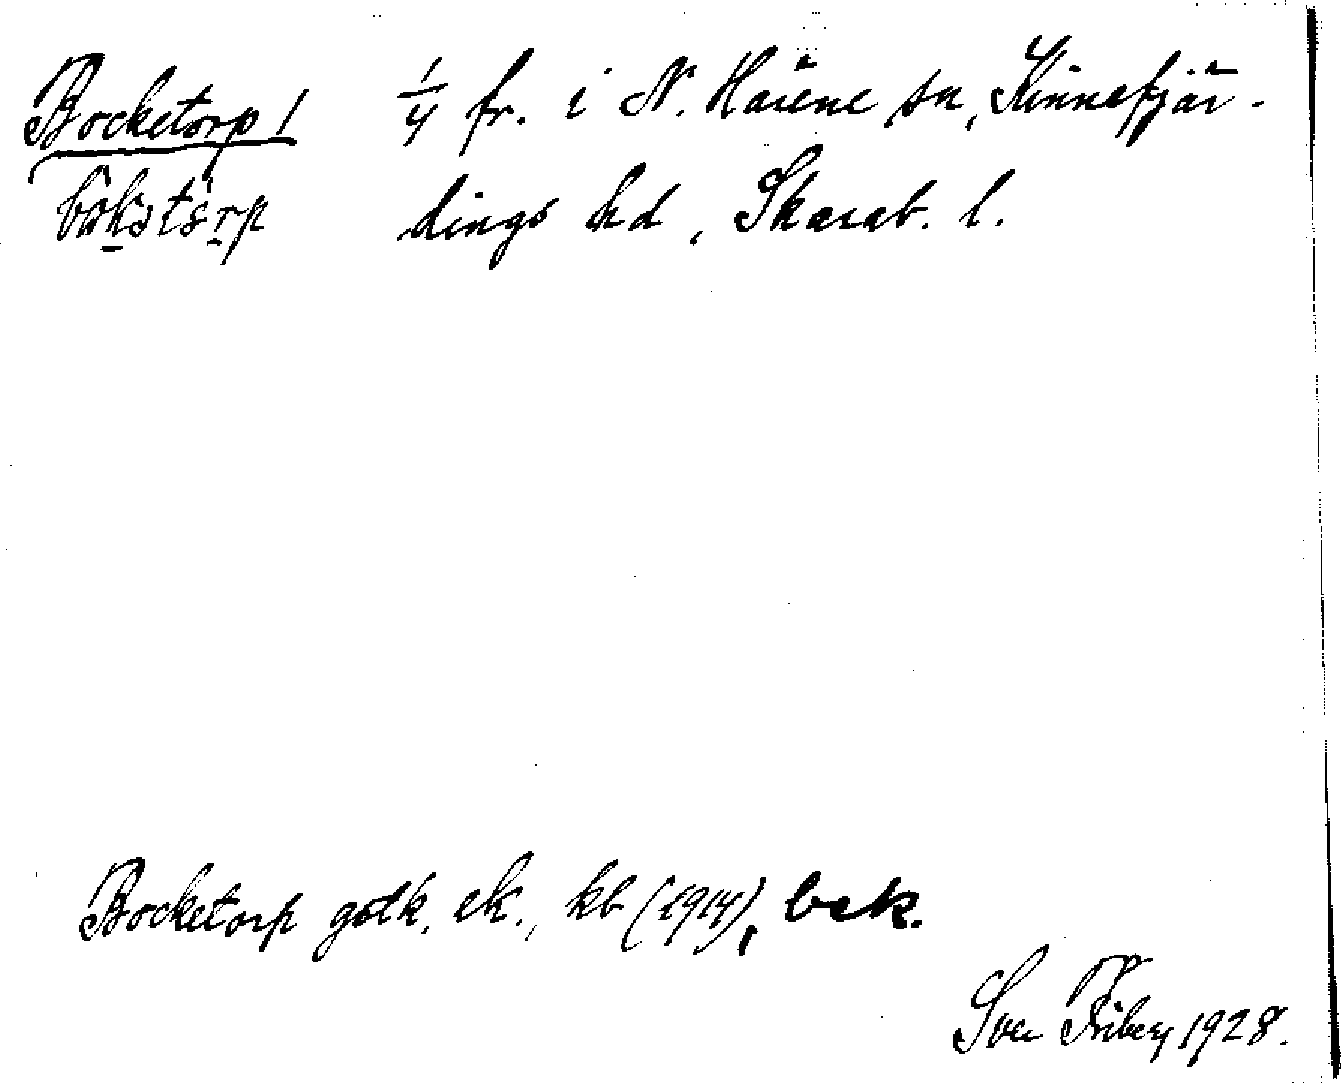 Bocketorp 1 1/4 fr. i N. Härene sn, Kinnefjär-
dings hd, Skarab. l.
Bocketorp godk. ek., kb (1914), bek.
Sven Friberg 1928.